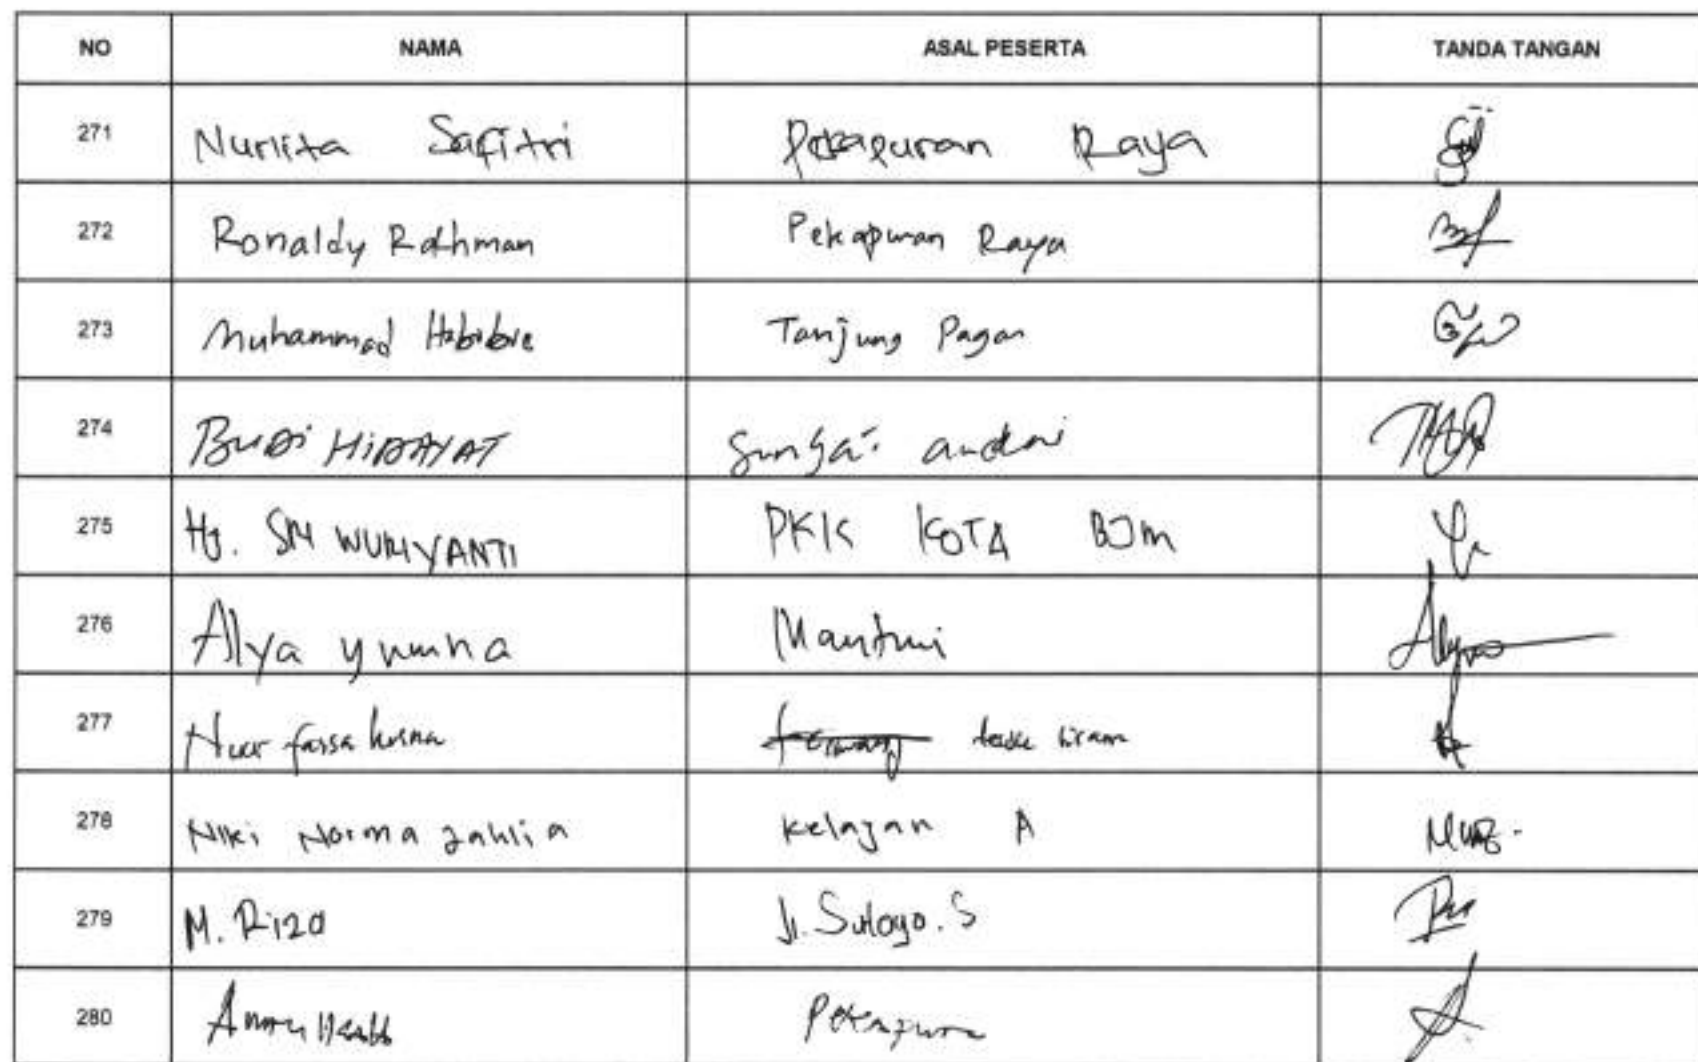 NO NAMA ASAL PESERTA TANDA TANGAN
271 Nurlita Safitri Pekapuran Raya
272 Ronaldy Rahman Pekapuran Raya
273 Muhammad Habibie Tanjung Pagar
274 BUDi HiDAYAT Sungai andai
275 Hj. SRI WURIYANTI PKK KOTA BJM
276 Alya yumna Mantuii
277 Nur faisa husna
278 Niki Norma zahlia Kelayan A
279 M. Riza Jl. Sutoyo. S
280 Pekapuran